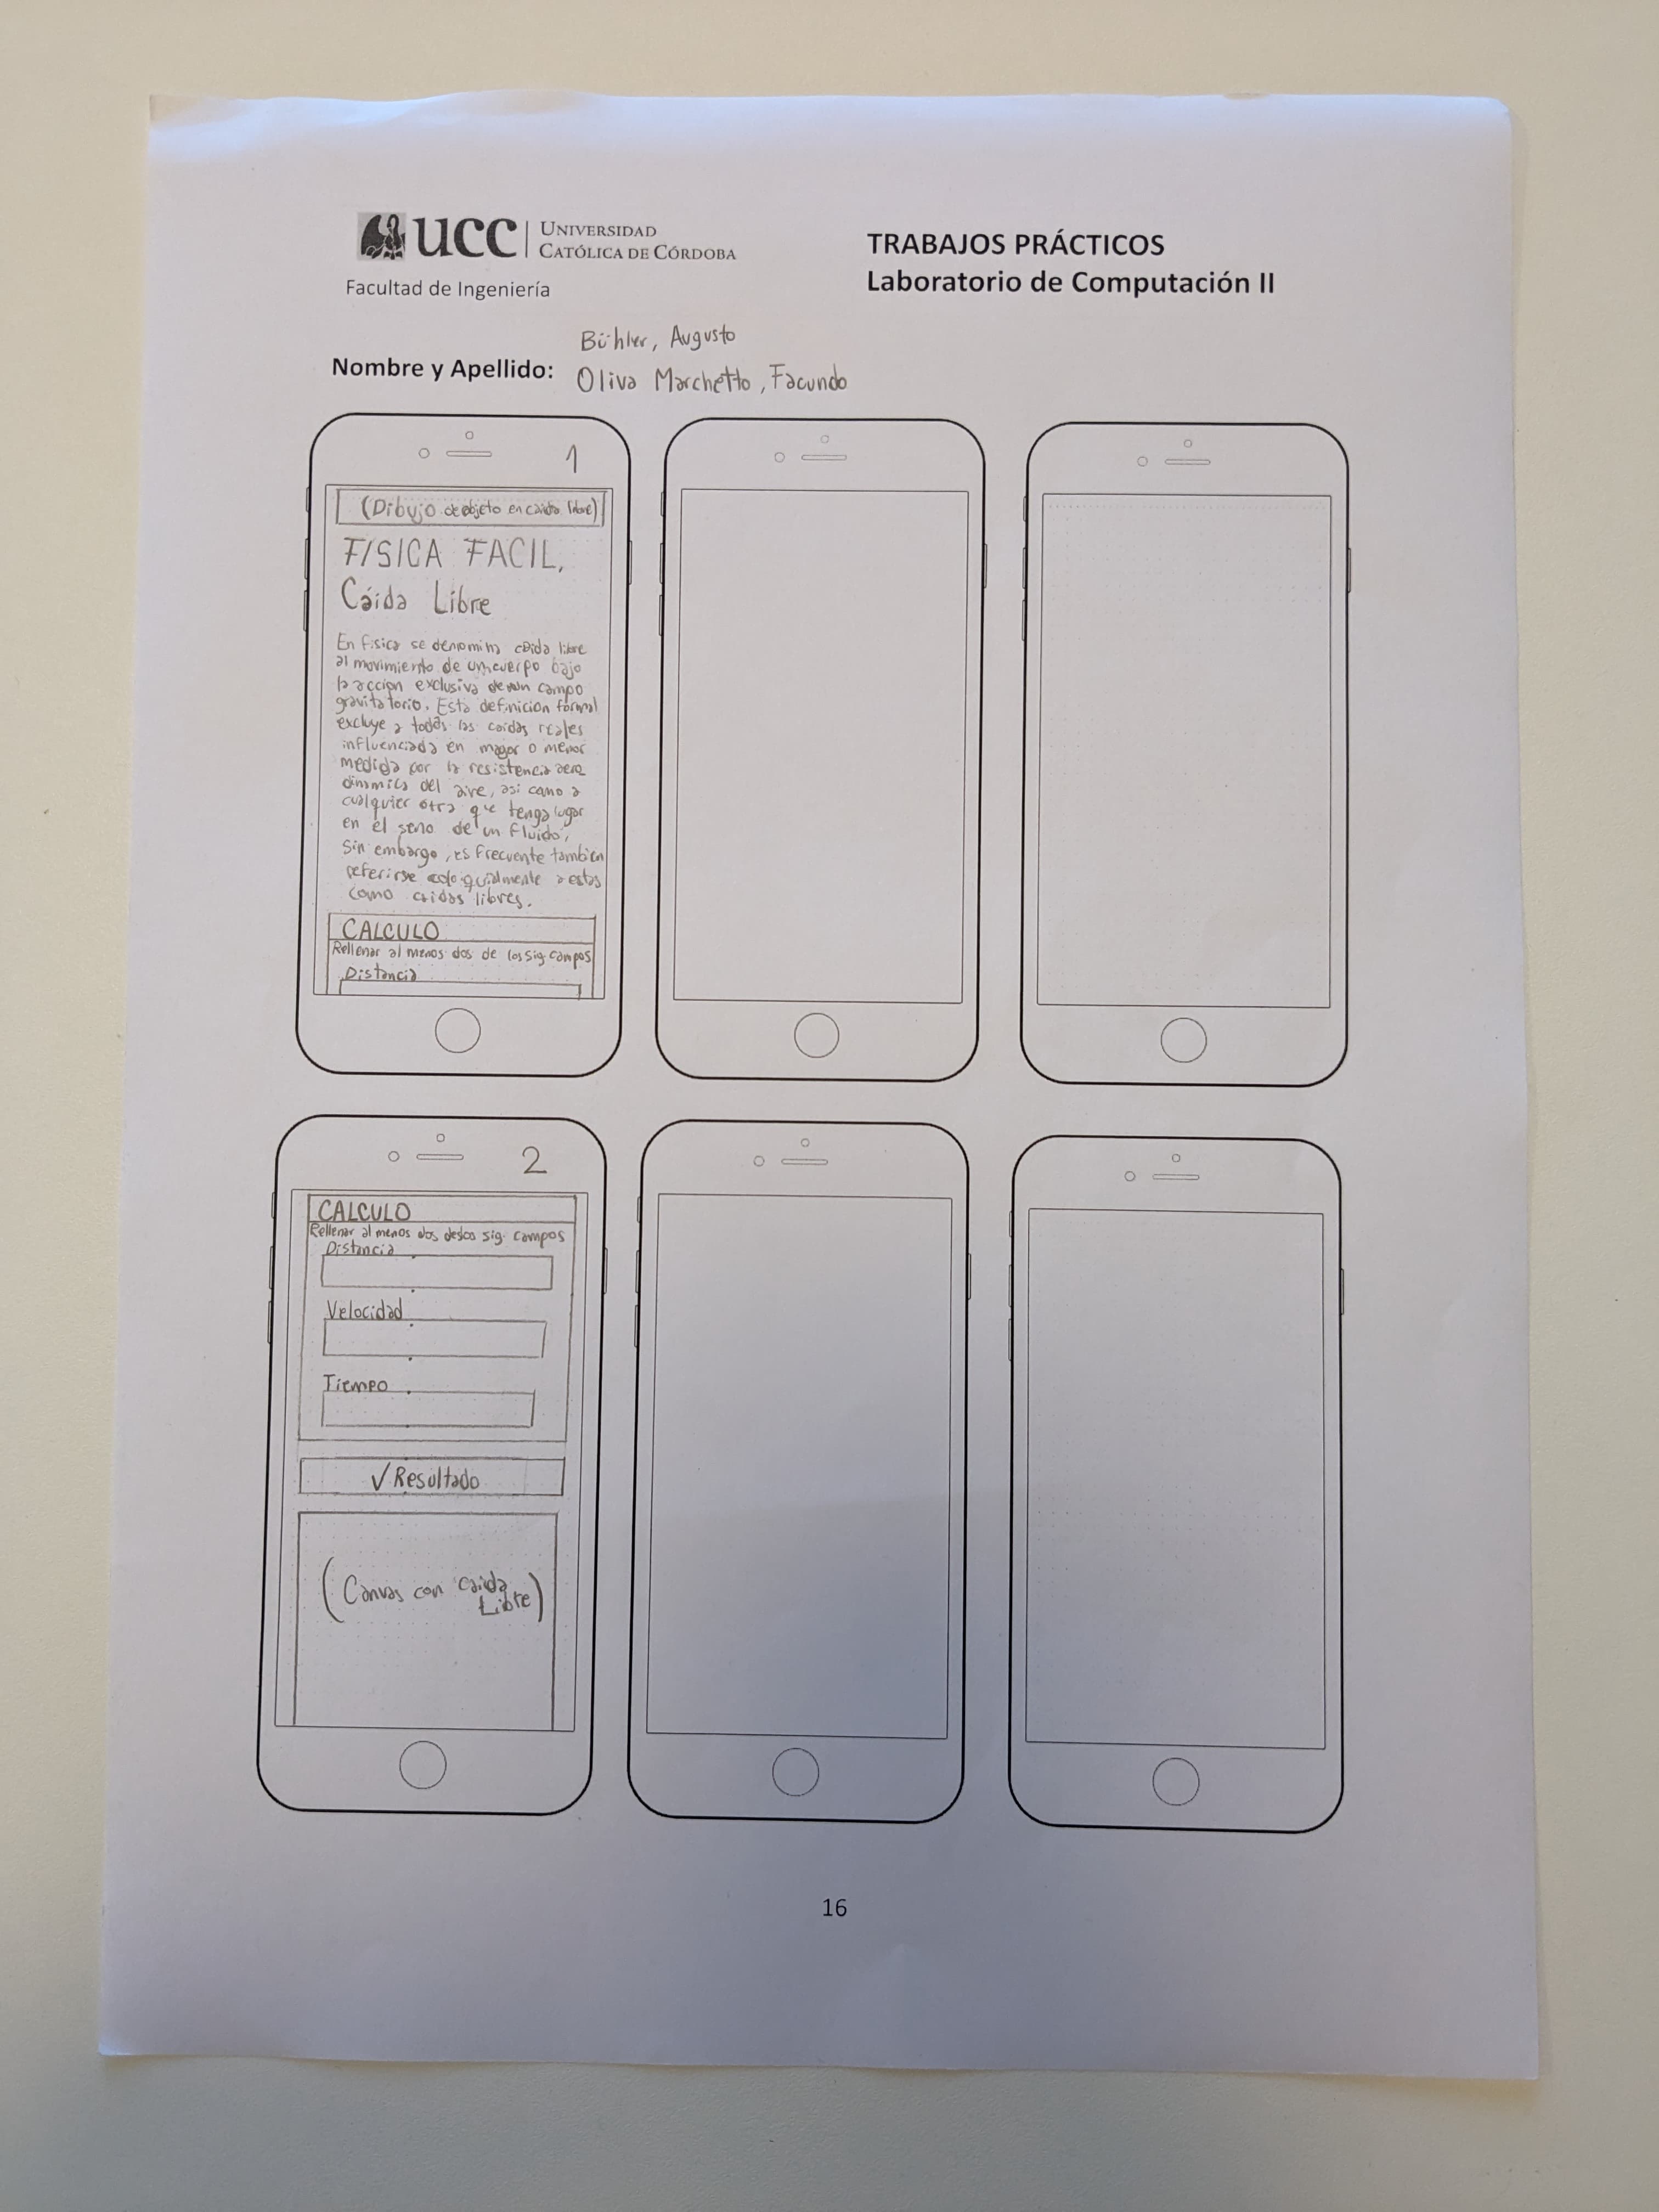 UCC
UNIVERSIDAD
CATÓLICA DE CÓRDOBA
Facultad de Ingeniería
TRABAJOS PRÁCTICOS
Laboratorio de Computación II
Nombre y Apellido:
Bühler, Augusto
Oliva Marchetto, Facundo
1
(Dibujo de objeto en caida libre)
FISICA FACIL,
Cáida Libre
En fisica se denomina caida libre
al movimiento de un cuerpo bajo
la accion exclusiva de un campo
gravitatorio. Esta definicion formal
excluye a todas las caidas reales
influenciada en mayor o menor
medida por la resistencia aero
dinamica del aire, asi como a
cualquier otra que tenga lugar
en el seno de un fluido;
Sin embargo, es frecuente tambien
referirse coloquialmente a estas
como caidas libres.
CALCULO
Rellenar al menos dos de los sig. campos
Distancia
2
CALCULO
Rellenar al menos dos sig. campos
Distancia
Velocidad
Tiempo
✓ Resultado
(Canvas con caida
Libre)
16